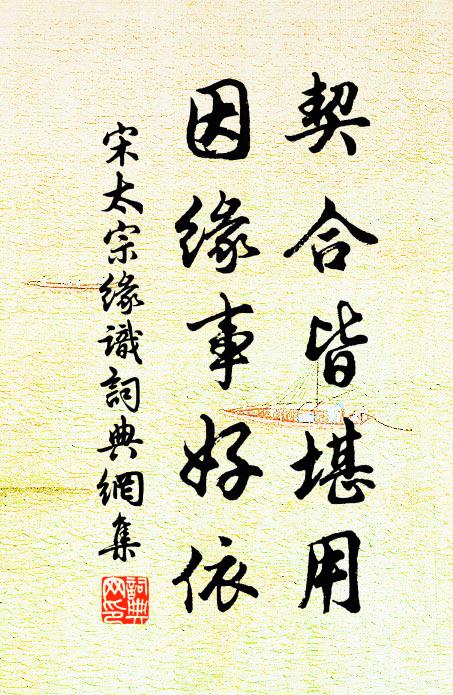 契合皆堪用
因緣事好依
宋太宗緣識詞典網集
詞典网印